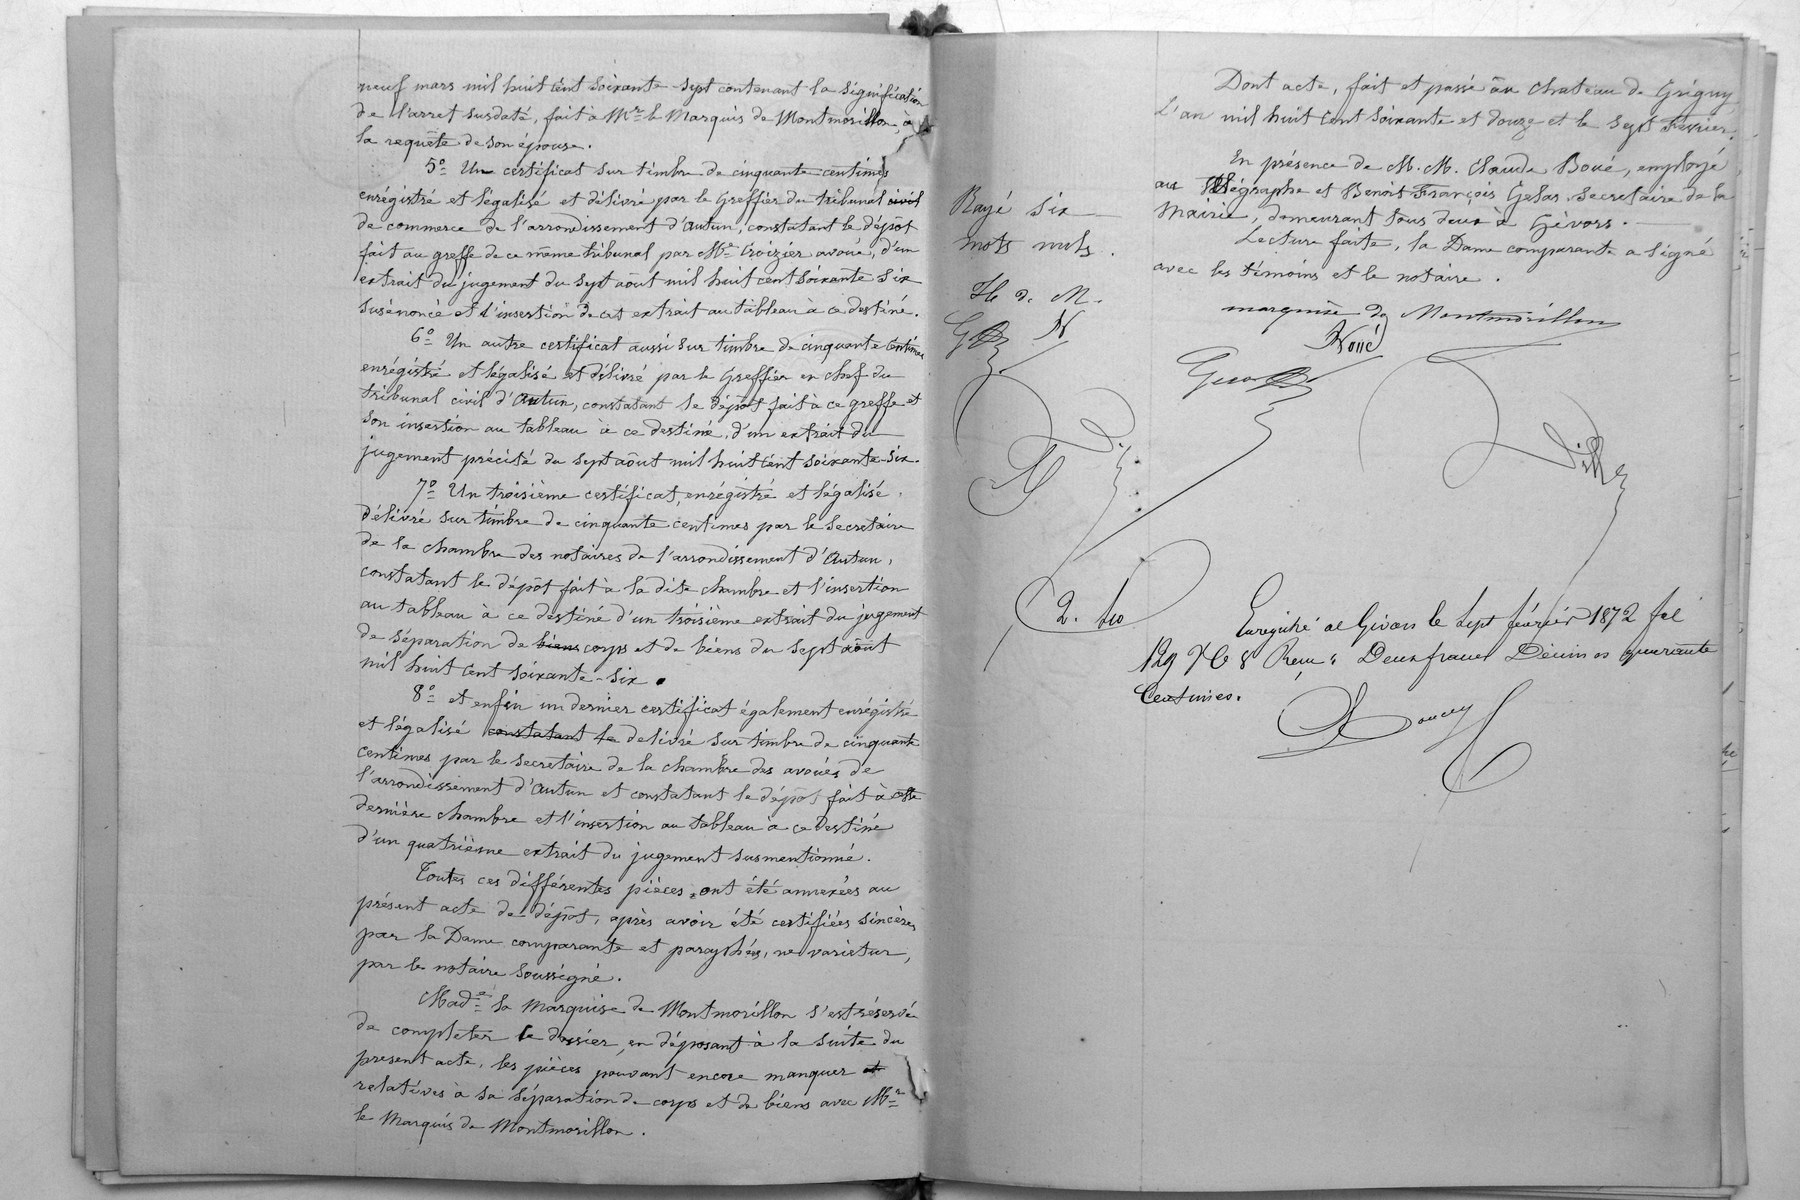 neuf mars mil huit cent soixante-sept contenant la signification
de l'arret susdaté, fait à Mr le Marquis de Montmorillon, à
la requête de son épouse.
5o Un certificat sur timbre de cinquante centimes
enrégistré et légalisé et délivré par le Greffier du tribunal civil
de commerce de l'arrondissement d'Autun, constatant le dépôt
fait au greffe de ce même tribunal par Me Croizier avoué, d'un
extrait du jugement du sept août mil huit cent soixante six
susénoncé et l'insertion de cet extrait au tableau à ce destiné.
6o Un autre certificat aussi sur timbre de cinquante centimes
enrégistré et légalisé et délivré par le Greffier en chef du
tribunal civil d'Autun, constatant le dépôt fait à ce greffe et
son insertion au tableau à ce destiné, d'un extrait du
jugement précité du sept août mil huit cent soixante-six.
7o Un troisième certificat, enrégistré et légalisé,
délivré sur timbre de cinquante centimes par le Secretaire
de la chambre des notaires de l'arrondissement d'Autun,
constatant le dépôt fait à la dite chambre et l'insertion
au tableau à ce destiné d'un troisième extrait du jugement
de séparation de biens corps et de biens du sept août
mil huit cent soixante-six.
8o et enfin un dernier certificat également enrégistré
et légalisé constatant le delivré sur timbre de cinquante
centimes par le secretaire de la chambre des avoués de
l'arrondissement d'Autun et constatant le dépôt fait à cette
dernière chambre et l'insertion au tableau à ce destiné
d'un quatrième extrait du jugement susmentionné.
Toutes ces différentes pièces ont été annexées au
présent acte de dépôt, après avoir été certifiées sincères
par la Dame comparante et paraphées, ne varietur,
par le notaire soussigné.
Made la Marquise de Montmorillon s'est réservé
de completer le dossier, en déposant à la suite du
present acte, les pièces pouvant encore manquer et
relatives à sa séparation de corps et de biens avec Mr
le Marquis de Montmorillon.
Rayé six
mots nuls.
H de M.
Dont acte, fait et passé au chateau de Grigny
L'an mil huit cent soixante et douze et le sept Fevrier,
En présence de M. M. Claude Boué, employé
au Télégraphe et Benoit François Gelas, Secretaire de la
Mairie, demeurant tous deux à Givors.
Lecture faite, la Dame comparante a signé
avec les témoins et le notaire.
marquise de Montmorillon
Boué
Enregistré à Givors le sept février 1872 fol
129 Vo C 8 Reçu : Deux francs Décimes quarante
Centimes.